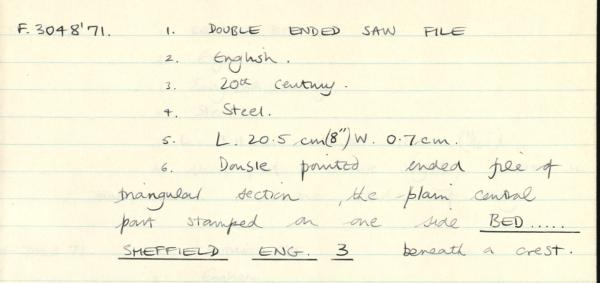 F.3048'71. 1. DOUBLE ENDED SAW FILE
2. English.
3. 20th century.
4. Steel.
5. L. 20.5 cm(8") W. 0.7cm.
6. Double pointed ended file of
triangular section, the plain central
part stamped on one side BED.....
SHEFFIELD ENG. 3 beneath a crest.